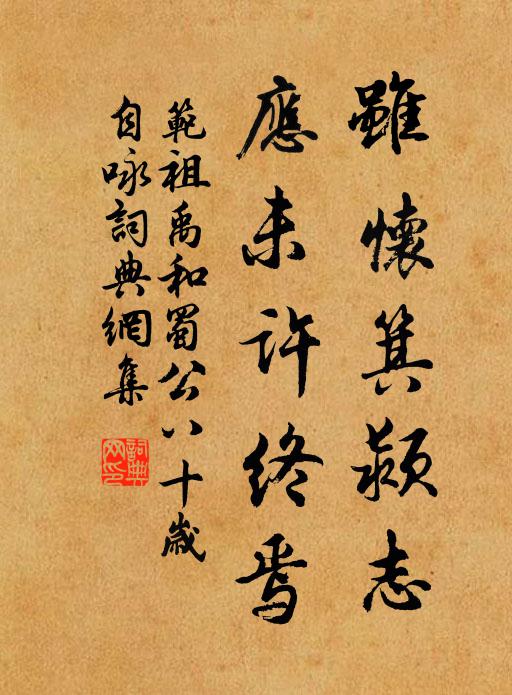 雖懷箕潁志
應未許終焉
範祖禹和蜀公八十歲
自咏詞典網集
詞典網印